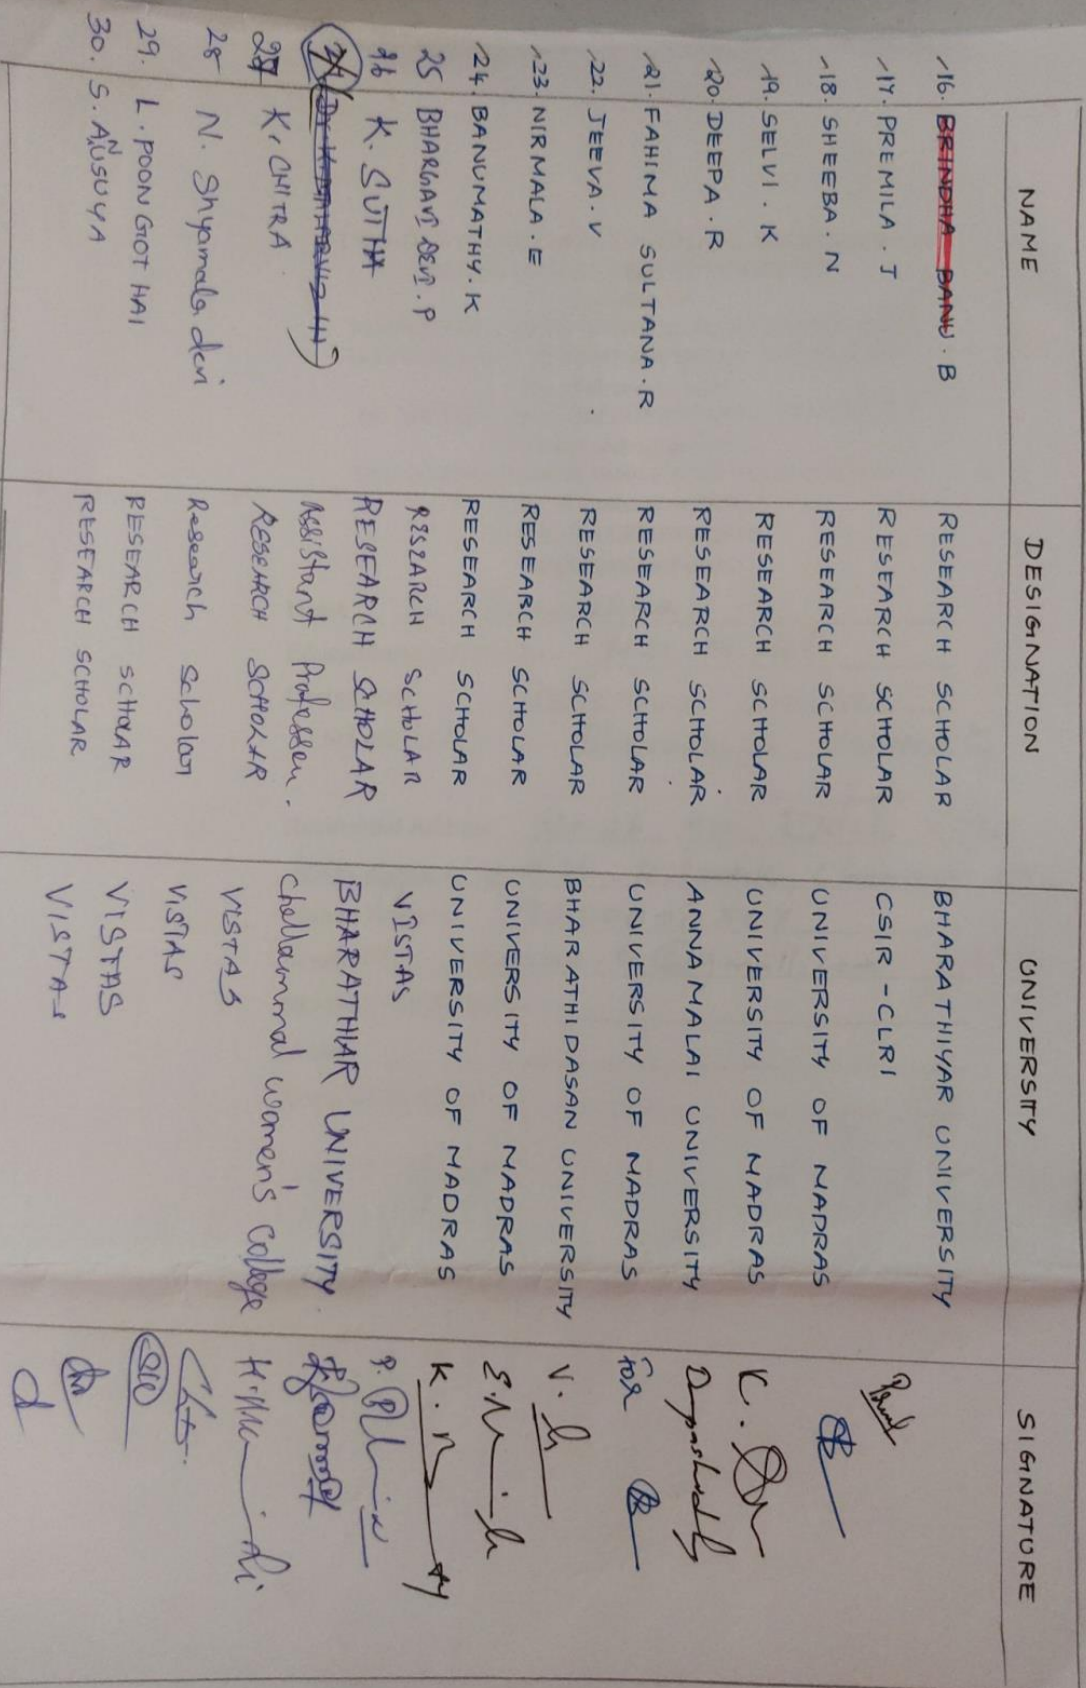 NAME DESIGNATION UNIVERSITY SIGNATURE
16. BRINDHA BANU . B RESEARCH SCHOLAR BHARATHIYAR UNIVERSITY
17. PREMILA . J RESEARCH SCHOLAR CSIR - CLRI
18. SHEEBA . N RESEARCH SCHOLAR UNIVERSITY OF MADRAS
19. SELVI . K RESEARCH SCHOLAR UNIVERSITY OF MADRAS K.
20. DEEPA . R RESEARCH SCHOLAR ANNAMALAI UNIVERSITY
21. FAHIMA SULTANA . R RESEARCH SCHOLAR UNIVERSITY OF MADRAS for
22. JEEVA . V RESEARCH SCHOLAR BHARATHIDASAN UNIVERSITY V.
23. NIRMALA . E RESEARCH SCHOLAR UNIVERSITY OF MADRAS
24. BANUMATHY . K RESEARCH SCHOLAR UNIVERSITY OF MADRAS K.
25 BHARGAVI DEVI . P RESEARCH SCHOLAR VISTAS P.
26 K. SUTHA RESEARCH SCHOLAR BHARATHIAR UNIVERSITY.
Assistant Professor. Chellammal Women's College
27 K. CHITRA . RESEARCH SCHOLAR VISTAS
28 N. Shyamala devi Research Scholar VISTAS
29. L. POONGOTHAI RESEARCH SCHOLAR VISTAS
30. S. ANUSUYA RESEARCH SCHOLAR VISTAS